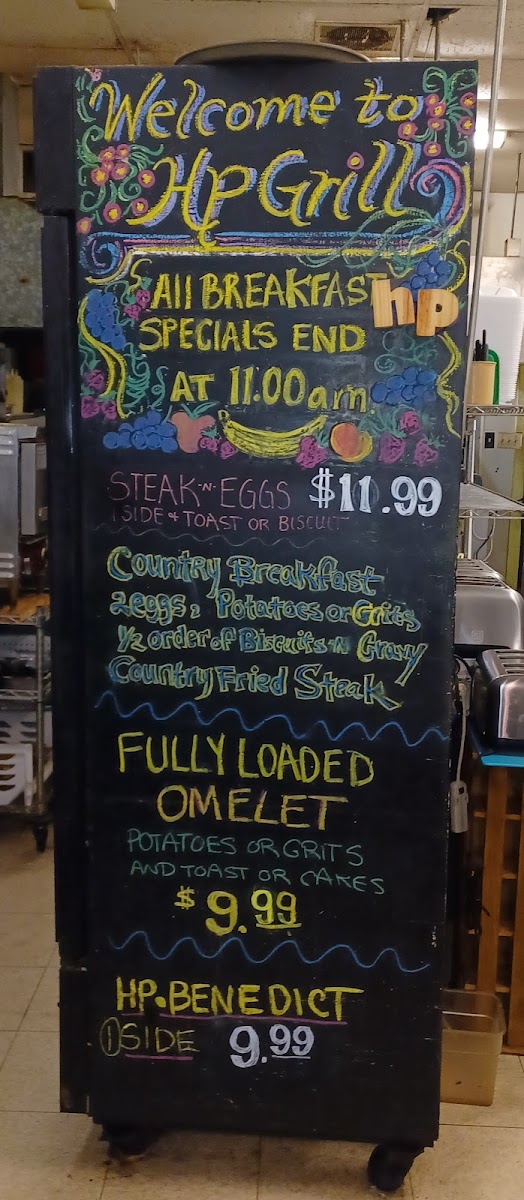 Welcome to
Hp Grill
All BREAKFAST
hp
SPECIALS END
AT 11.00am
STEAK-N-EGGS $11.99
1 SIDE + TOAST OR BISCUIT
Country Breakfast
2eggs, Potatoes or Grits
1/2 order of Biscuits-n Gravy
Country Fried Steak
FULLY LOADED
OMELET
POTATOES OR GRITS
AND TOAST OR CAKES
$9.99
HP.BENEDICT
①SIDE 9.99